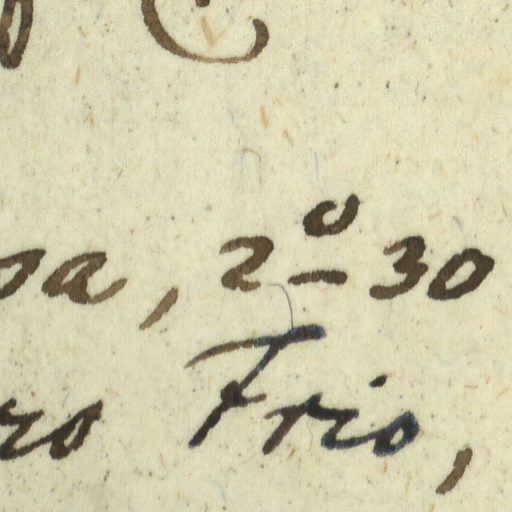 sa, 2º-30
ro Frio,